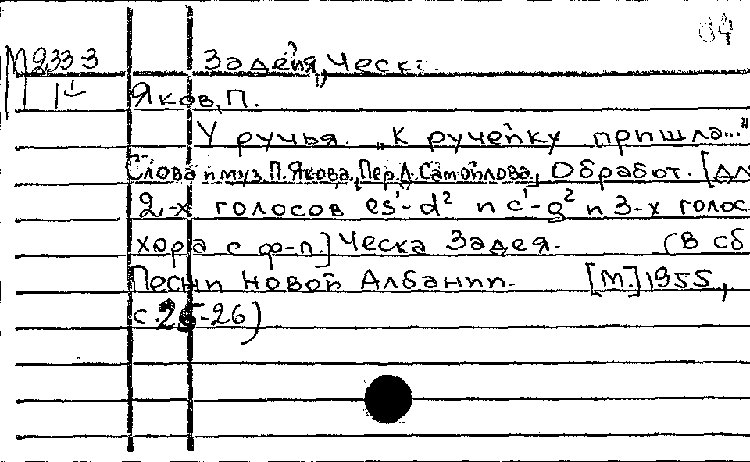 04
М 233-3 Задейя, Ческ.
1 Яков, П.
У ручья. „К ручейку пришла..."
Слова и муз. П. Якова, Пер. Д. Самойлова, Обработ. [дл
2-х голосов es¹-d² и c¹-g² и 3-х голос
хора с ф-п.] Ческа Задея. (В сб
Песни новой Албании. [М.] 1955,
с. 25-26)